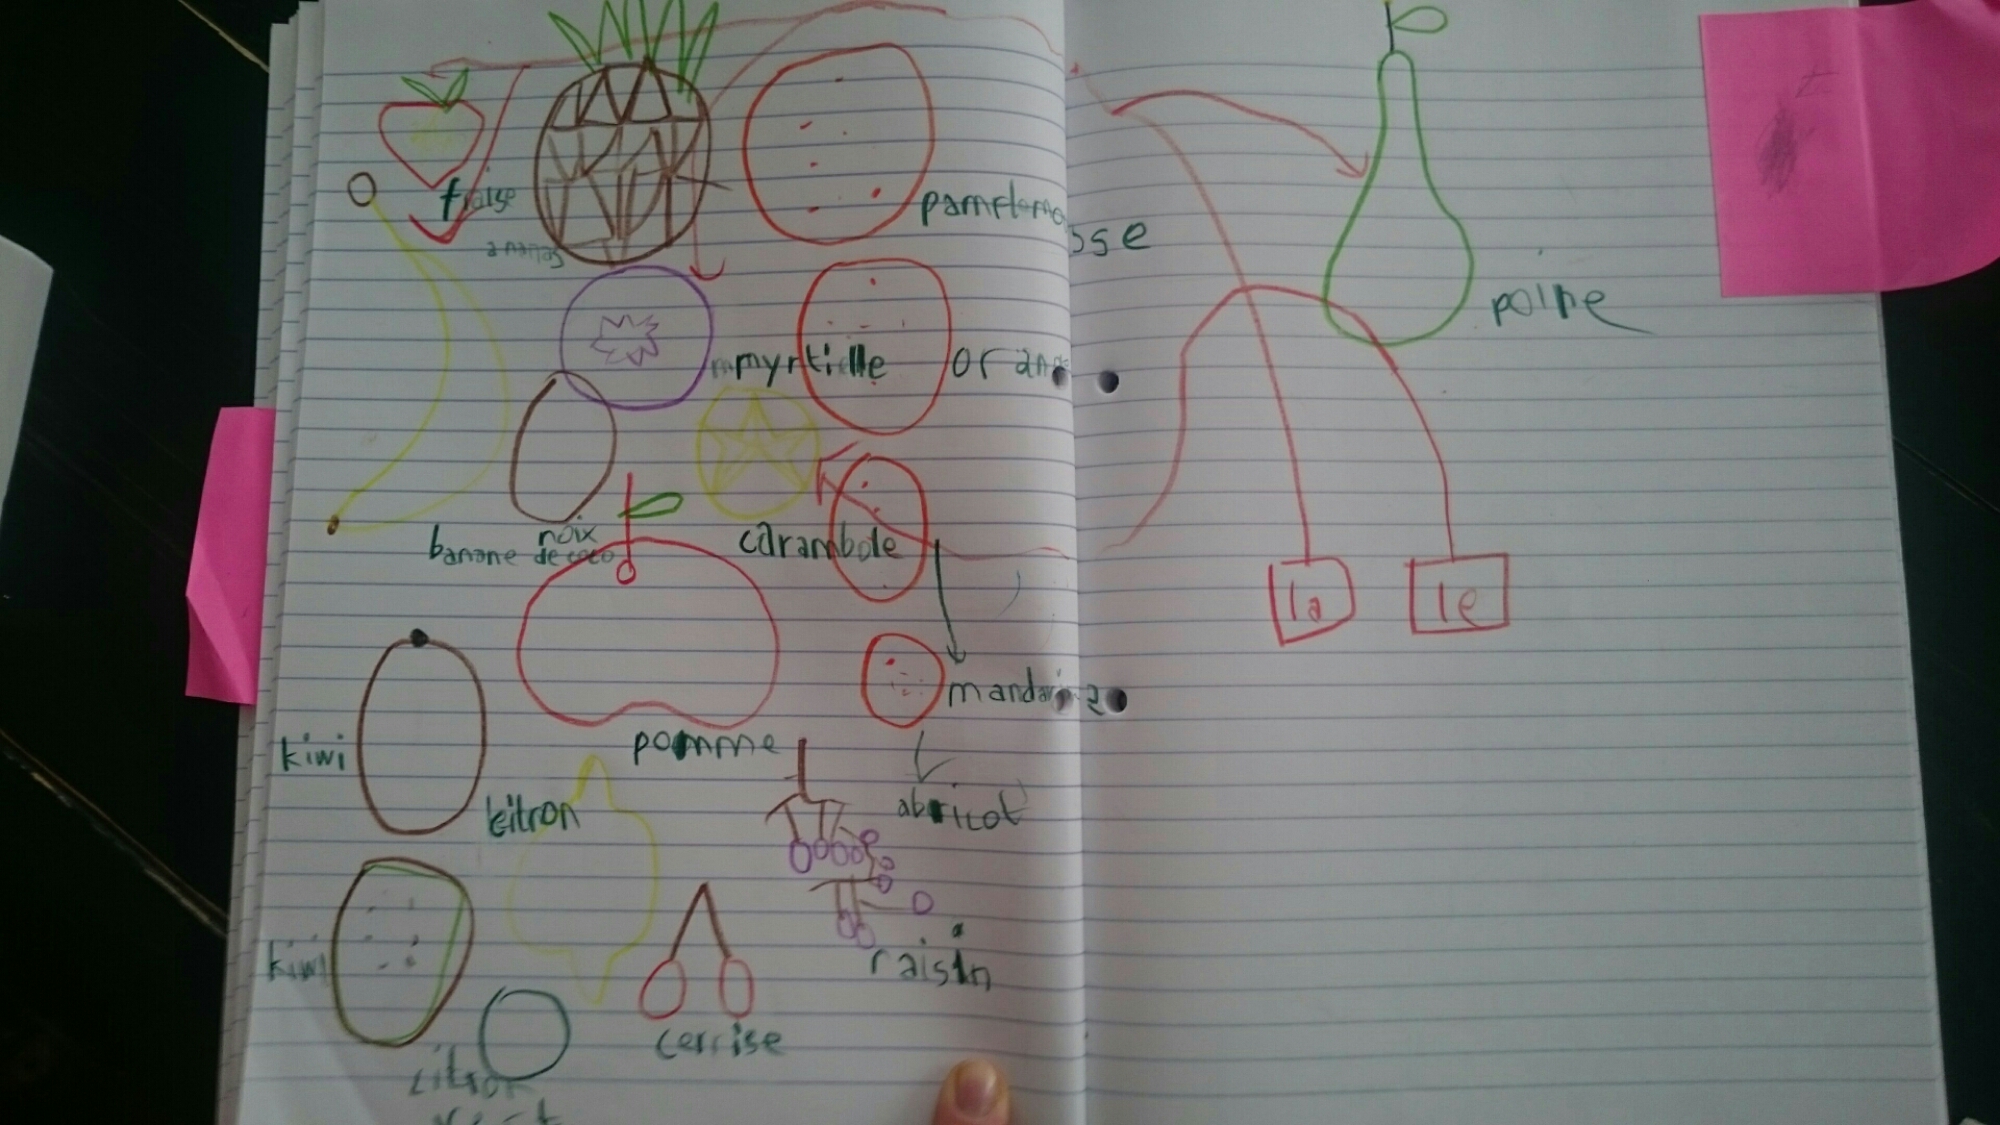 fraise
ananas
pamplemo
sse
myrtille
orange
banane
noix
de coco
carambole
poire
la
le
mandarine
kiwi
pomme
citron
abricot
kiwi
raisin
cerrise
citron
vert